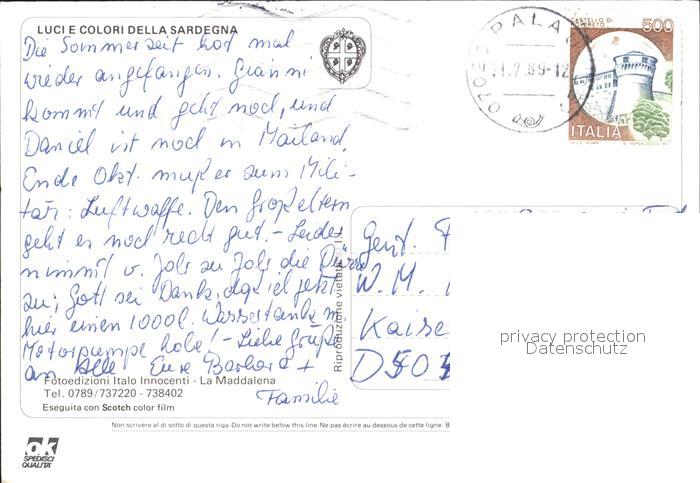 LUCI E COLORI DELLA SARDEGNA
Die Sommerzeit hat mal
wieder angefangen. Gianni
kommt und geht noch, und
Daniel ist noch in Mailand,
Ende Okt. muß er zum Mili-
tär: Luftwaffe. Den Großeltern
geht es noch recht gut. - Leider
nimmt v. Jahr zu Jahr die Dürre
zu; Gott sei Dank, daß ich jetzt
hier einen 1000l. Wassertank m.
Motorpumpe habe! - Liebe Grüße
an Alle Eure Barbara +
Familie
Fotoedizioni Italo Innocenti - La Maddalena
Tel. 0789/737220 - 738402
Eseguita con Scotch color film
ok
SPEDISCI
QUALITÀ
Non scrivere al di sotto di questa riga-Do not write below this line-Ne pas écrire au dessous de cette ligne- B
Riproduzione vietata
07020 PALA
11.7.89-12
CASTELLO DI
ROVERETO
500
ITALIA
Gent. F
W. M.
Kaise
D505
privacy protection
Datenschutz